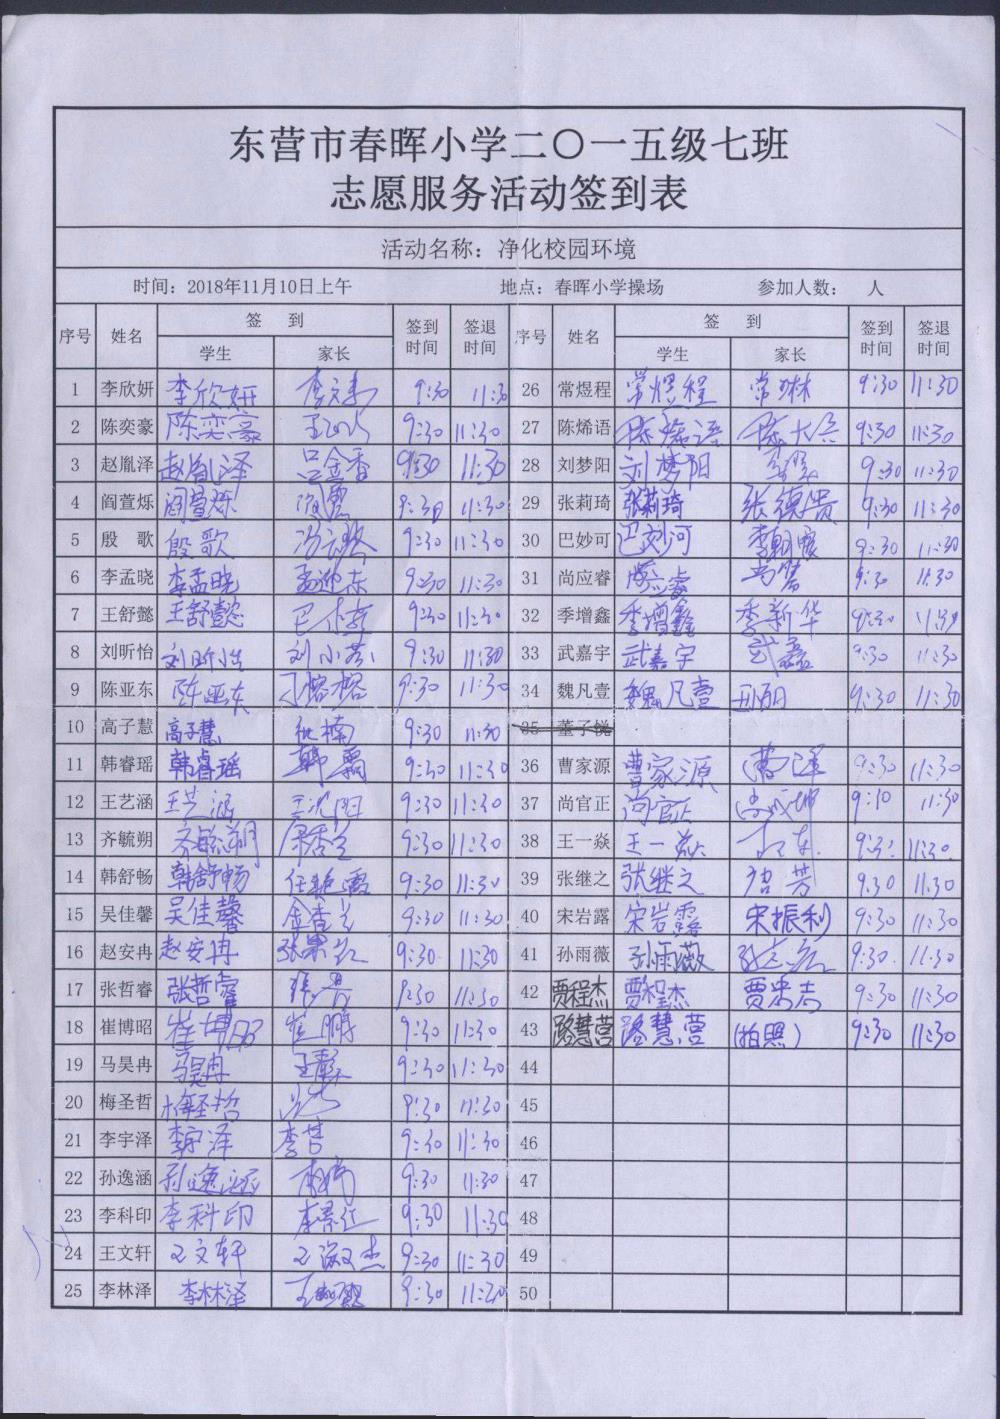 东营市春晖小学二〇一五级七班
志愿服务活动签到表
活动名称：净化校园环境
时间：2018年11月10日上午 地点：春晖小学操场 参加人数： 人
序号 姓名 签 到 签到时间 签退时间 序号 姓名 签 到 签到时间 签退时间
学生 家长 学生 家长
1 李欣妍 李欣妍 9:30 11:30 26 常煜程 常煜程 常琳 9:30 11:30
2 陈奕豪 陈奕豪 9:30 11:30 27 陈烯语 陈烯语 9:30 11:30
3 赵胤泽 赵胤泽 吕金香 9:30 11:30 28 刘梦阳 刘梦阳 9:30 11:30
4 阎萱烁 阎萱烁 9:30 11:30 29 张莉琦 张莉琦 张德贵 9:30 11:30
5 殷 歌 殷歌 9:30 11:30 30 巴妙可 巴妙可 李朝霞 9:30 11:30
6 李孟晓 李孟晓 孟迎东 9:30 11:30 31 尚应睿 尚应睿 9:30 11:30
7 王舒懿 王舒懿 9:30 11:30 32 季增鑫 季增鑫 季新华 9:30 11:30
8 刘昕怡 刘昕怡 刘小燕 9:30 11:30 33 武嘉宇 武嘉宇 武鑫 9:30 11:30
9 陈亚东 陈亚东 9:30 11:30 34 魏凡壹 魏凡壹 9:30 11:30
10 高子慧 高子慧 9:30 11:30 35 董子悦
11 韩睿瑶 韩睿瑶 韩霜 9:30 11:30 36 曹家源 曹家源 曹泽 9:30 11:30
12 王艺涵 王艺涵 王沈阳 9:30 11:30 37 尚官正 尚官正 9:30 11:30
13 齐毓朔 齐毓朔 9:30 11:30 38 王一焱 王一焱 9:30 11:30
14 韩舒畅 韩舒畅 任艳霞 9:30 11:30 39 张继之 张继之 唐芳 9:30 11:30
15 吴佳馨 吴佳馨 金香兰 9:30 11:30 40 宋岩露 宋岩露 宋振利 9:30 11:30
16 赵安冉 赵安冉 9:30 11:30 41 孙雨薇 孙雨薇 9:30 11:30
17 张哲睿 张哲睿 9:30 11:30 42 贾程杰 贾程杰 贾忠志 9:30 11:30
18 崔博昭 崔博昭 崔鹏 9:30 11:30 43 路慧营 路慧营 (拍照) 9:30 11:30
19 马昊冉 马昊冉 9:30 11:30 44
20 梅圣哲 梅圣哲 9:30 11:30 45
21 李宇泽 李宇泽 9:30 11:30 46
22 孙逸涵 孙逸涵 9:30 11:30 47
23 李科印 李科印 9:30 11:30 48
24 王文轩 王文轩 王淑杰 9:30 11:30 49
25 李林泽 李林泽 9:30 11:30 50